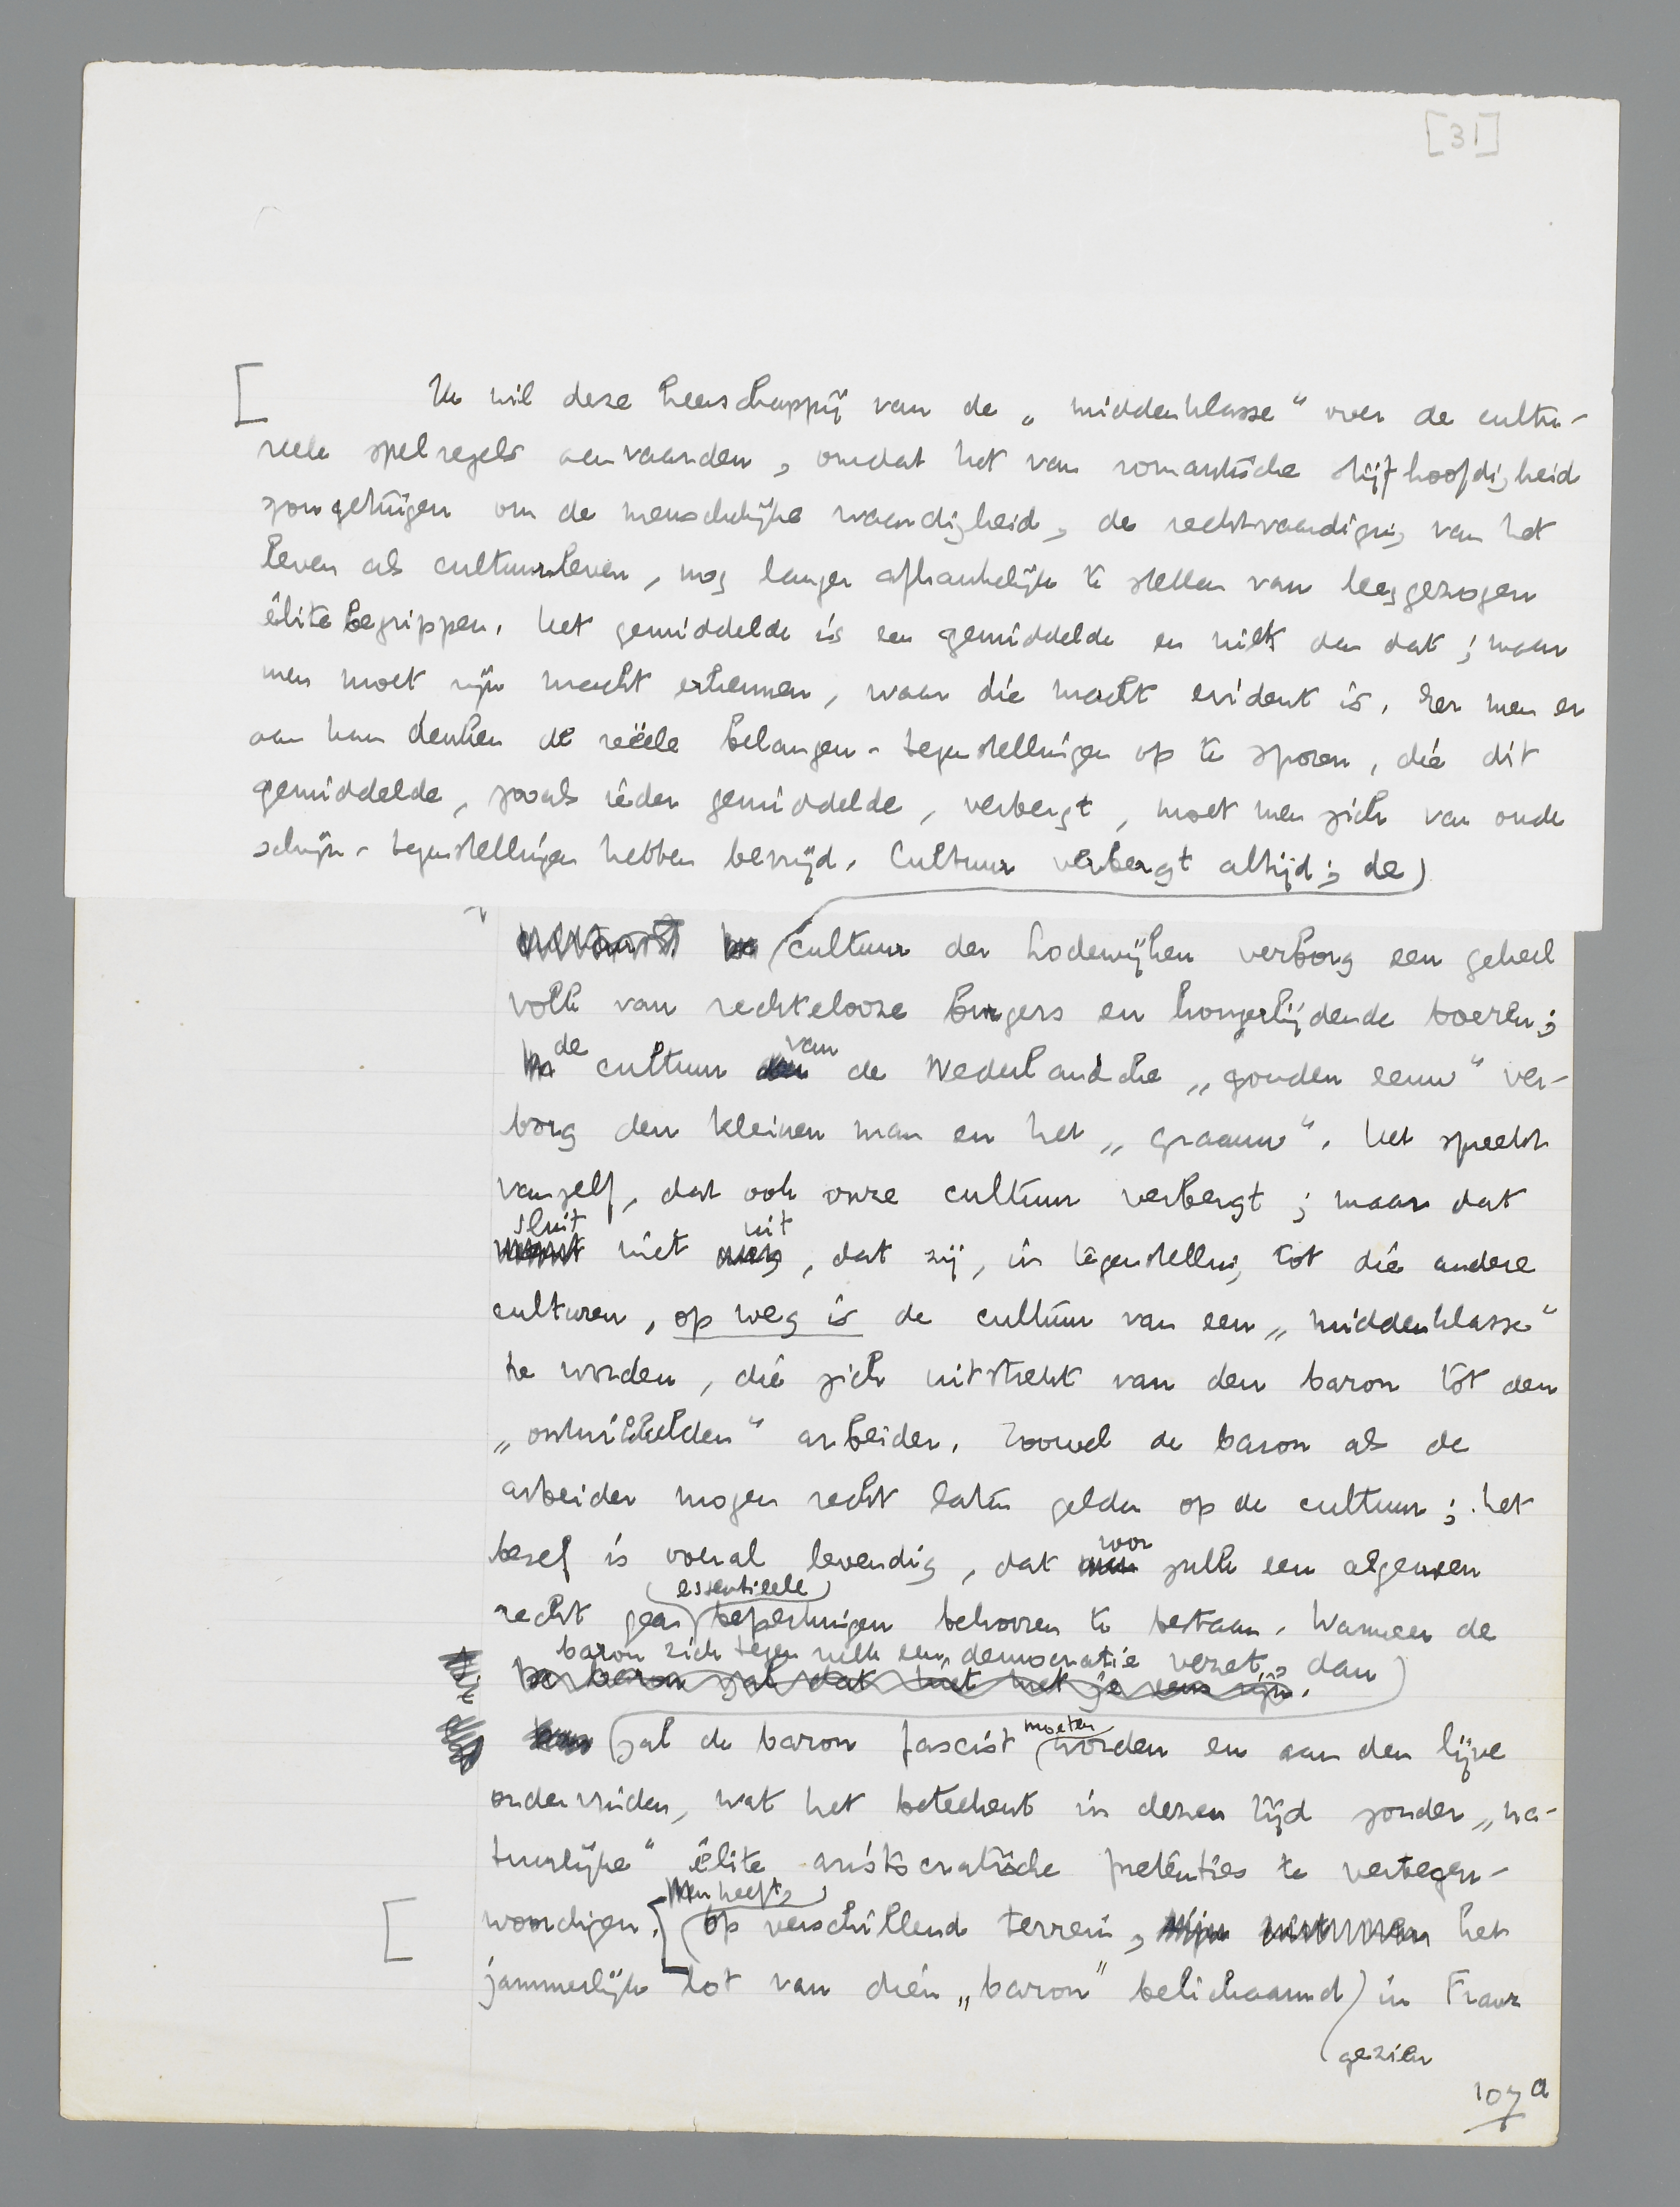 [31]
[ Ik wil deze heerschappij van de „middenklasse“ over de cultu-
reele spelregels aanvaarden, omdat het van romantische stijfhoofdigheid
zou getuigen om de menschelijke waardigheid, de rechtvaardiging van het
leven als cultuurleven, nog langer afhankelijk te stellen van leeggezogen
élitebegrippen. Het gemiddelde is een gemiddelde en niets dan dat; maar
men moet zijn macht erkennen, waar die macht evident is. Eer men er
aan kan denken de reëele belangen-tegenstellingen op te sporen, die dit
gemiddelde, zooals ieder gemiddelde, verbergt, moet men zich van oude
schijn-tegenstellingen hebben bevrijd. Cultuur verbergt altijd; de
cultuur der Lodewijken verborg een geheel
volk van rechtelooze burgers en hongerlijdende boeren;
de cultuur van de Nederlandsche „gouden eeuw“ ver-
borg den kleinen man en het „graauw“. Het spreekt
vanzelf, dat ook onze cultuur verbergt; maar dat
sluit niet uit, dat zij, in tegenstelling tot die andere
culturen, op weg is de cultuur van een „middenklasse“
te worden, die zich uitstrekt van den baron tot den
„ontwikkelden“ arbeider. Zoowel de baron als de
arbeider mogen recht laten gelden op de cultuur; het
besef is overal levendig, dat voor zulk een algemeen
recht geen essentieele beperkingen behooren te bestaan. Wanneer de
baron zich tegen zulk een democratie verzet, dan
De baron zal dat niet met je eens zijn.
zal de baron fascist moeten worden en aan den lijve
ondervinden, wat het beteekent in dezen tijd zonder „na-
tuurlijke“ élite aristocratische pretenties te vertegen-
woordigen. [Men heeft, op verschillend terrein, het
[ jammerlijke lot van dien „baron“ belichaamd gezien in Franz
107a